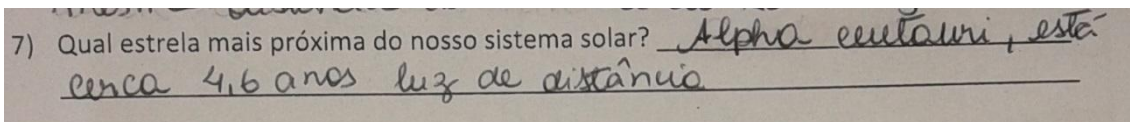 7) Qual estrela mais próxima do nosso sistema solar? Alpha centauri, está
cerca 4,6 anos luz de distância